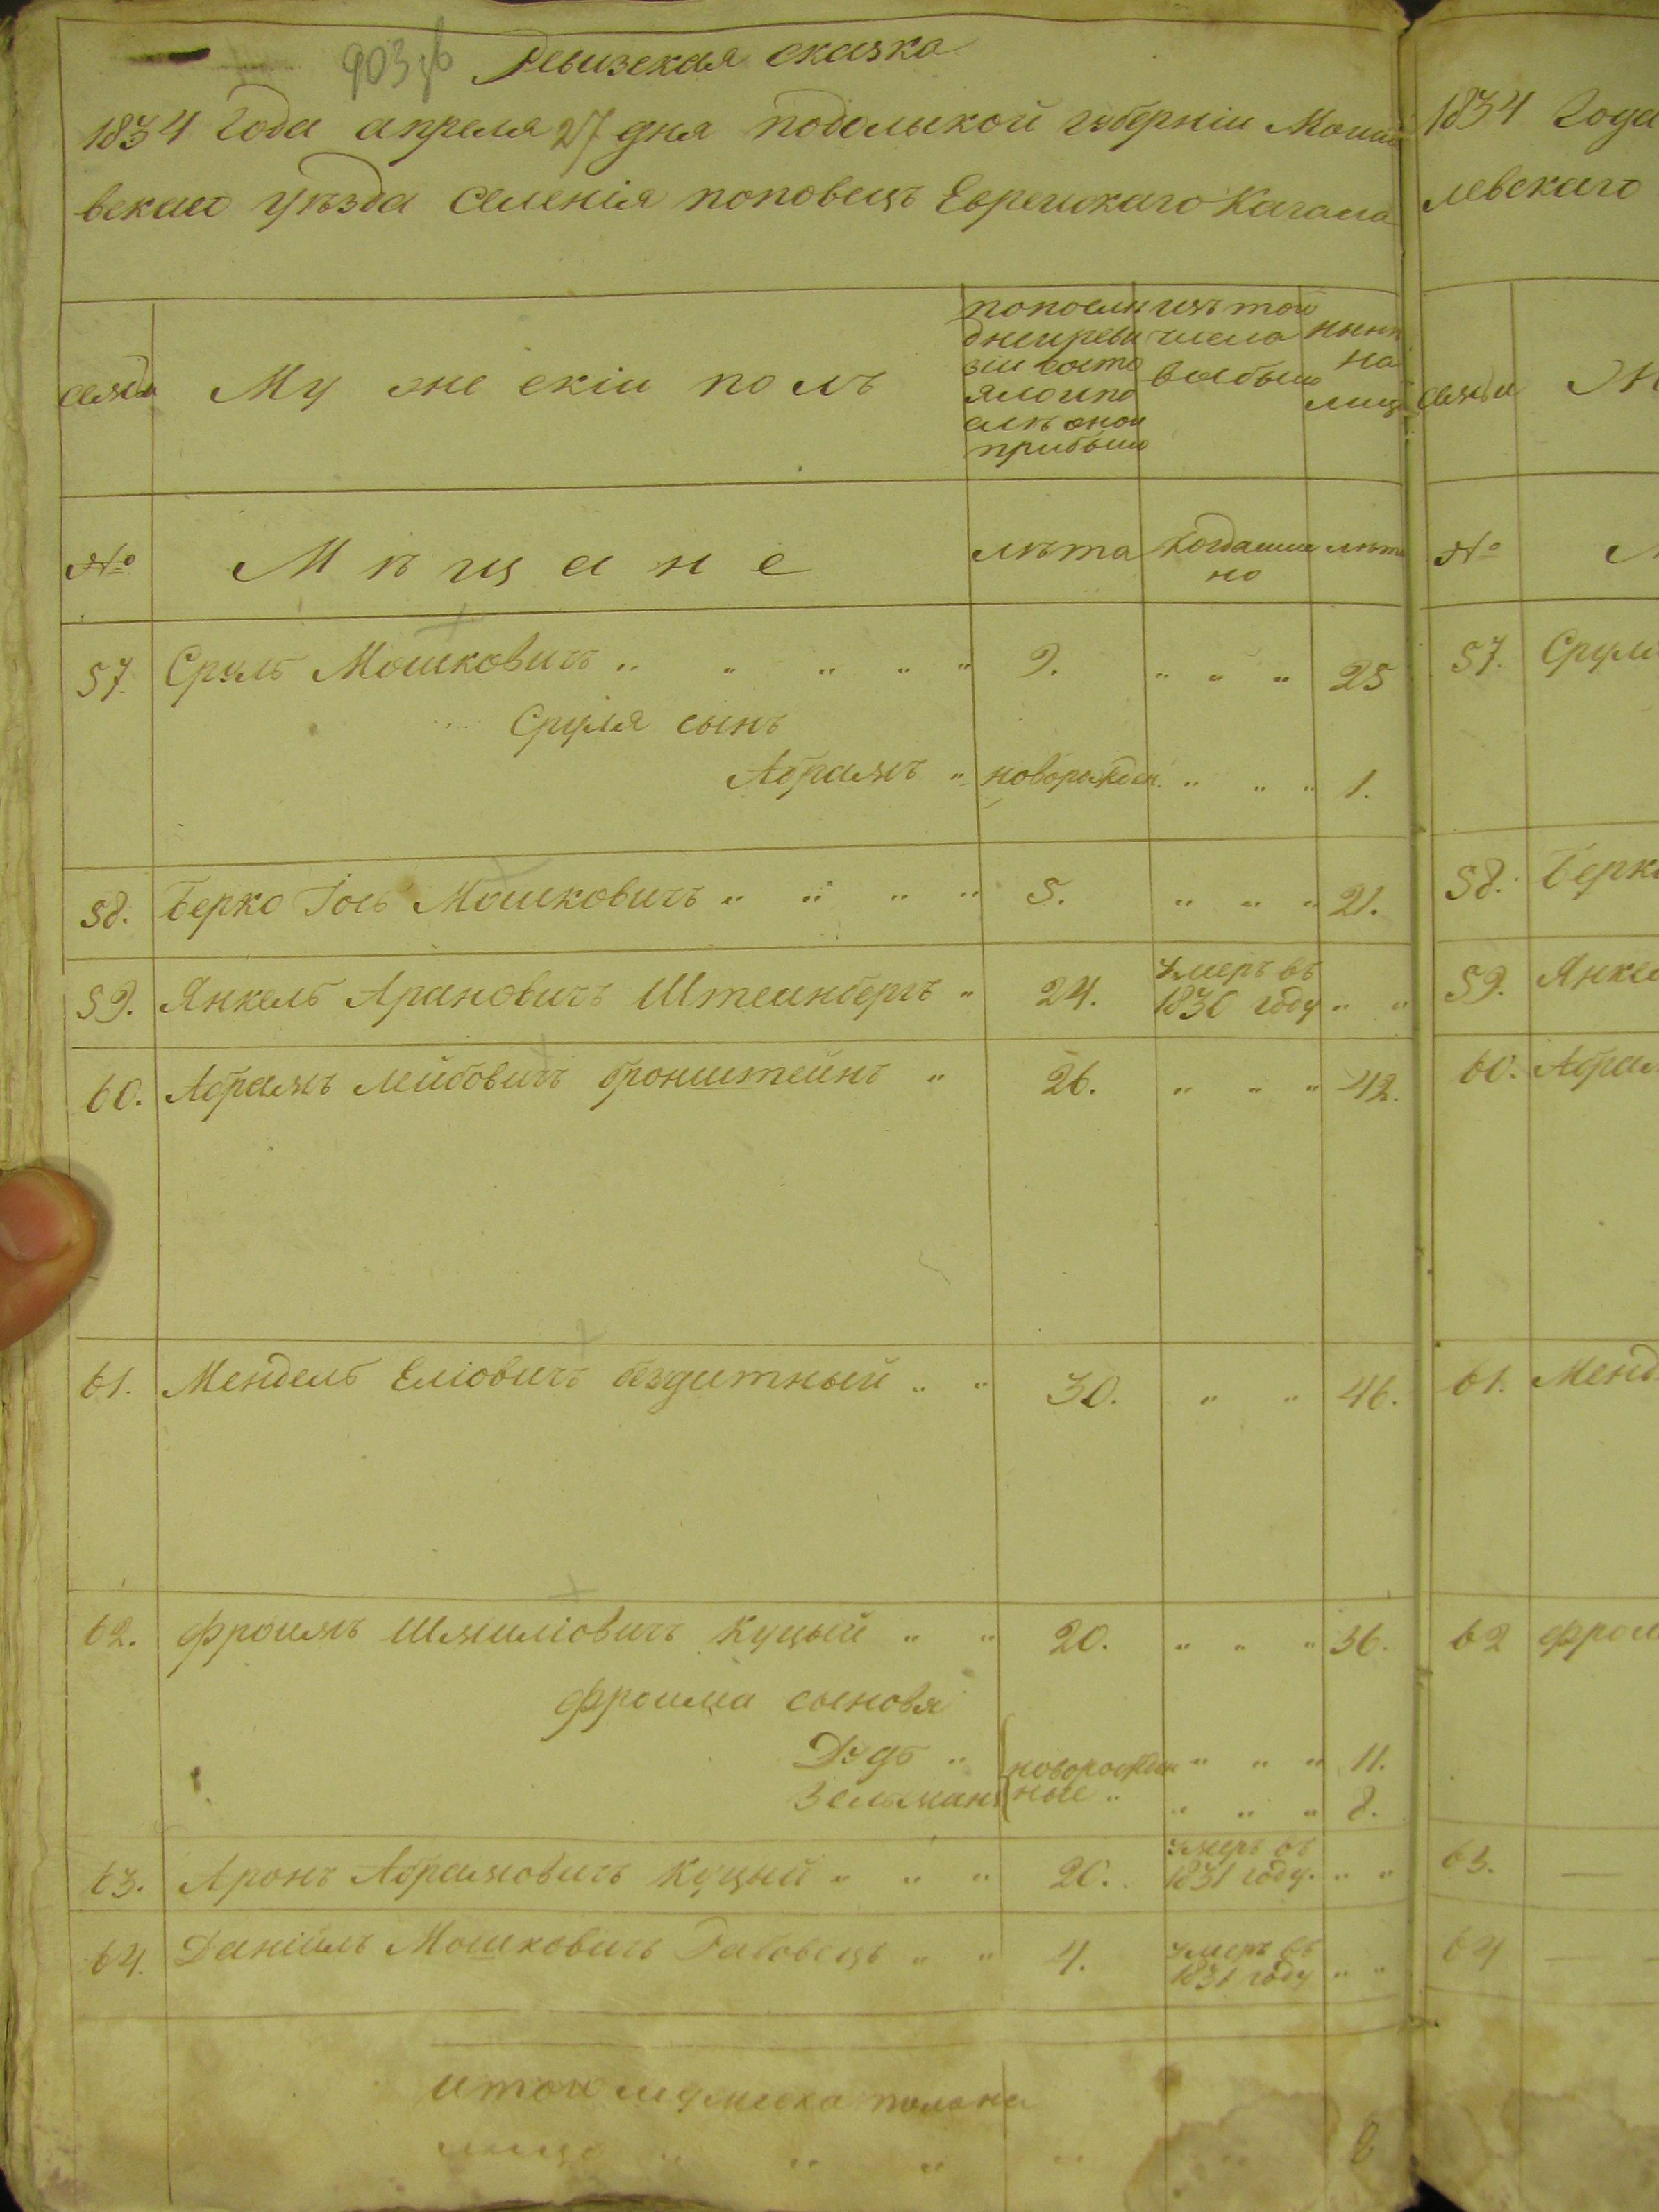 903 об
Ревизская сказка
1834 Года апреля 27 дня подольской губерніи Могиле
вскаго уѣзда селенія поповецъ Еврейскаго Кагала
семьи
Мужескій полъ
попослѣ
дней реви
зіи состо
яло и по
слѣ оной
прибыло
изъ того
числа
выбыло
нынѣ
на
лицо
№
Мѣщане
лѣта
когда имен
но
лѣта
57. Сруль Мошковичъ „ „ „ „ „ 9. „ „ „ 25
Сруля сынъ
Абрамъ „ новорожден. „ „ „ 1.
58. Берко Іось Мошковичъ „ „ „ „ 5. „ „ „ 21.
59. Янкель Арановичъ Штейнбергъ „ 24. умеръ въ
1830 году „ „
60. Абрамъ Лейбовичъ бронштейнъ „ 26. „ „ „ 42.
61. Мендель Еліовичъ бездитный „ „ 30. „ „ 46.
62. Фроимъ Шмиліовичъ Куцый „ „ 20. „ „ „ 36.
Фроима сыновя
Дудь „ новорожден „ „ „ 11.
Зельманъ ные „ „ „ „ 8.
63. Аронъ Абрамовичъ Куцый „ „ „ 20. умеръ въ
1831 году. „ „
64. Даніиль Мошковичъ Рабовецъ „ „ 4. умеръ въ
1831 году „ „
Итого мужеска пола на
лицо „ „ „ „ „ 8
1834 Года
левскаго
семьи
№
57. Сруля
58. Берк
59. Янке
60. Абрам
61. Менд
62 фрои
63. —
64 — —